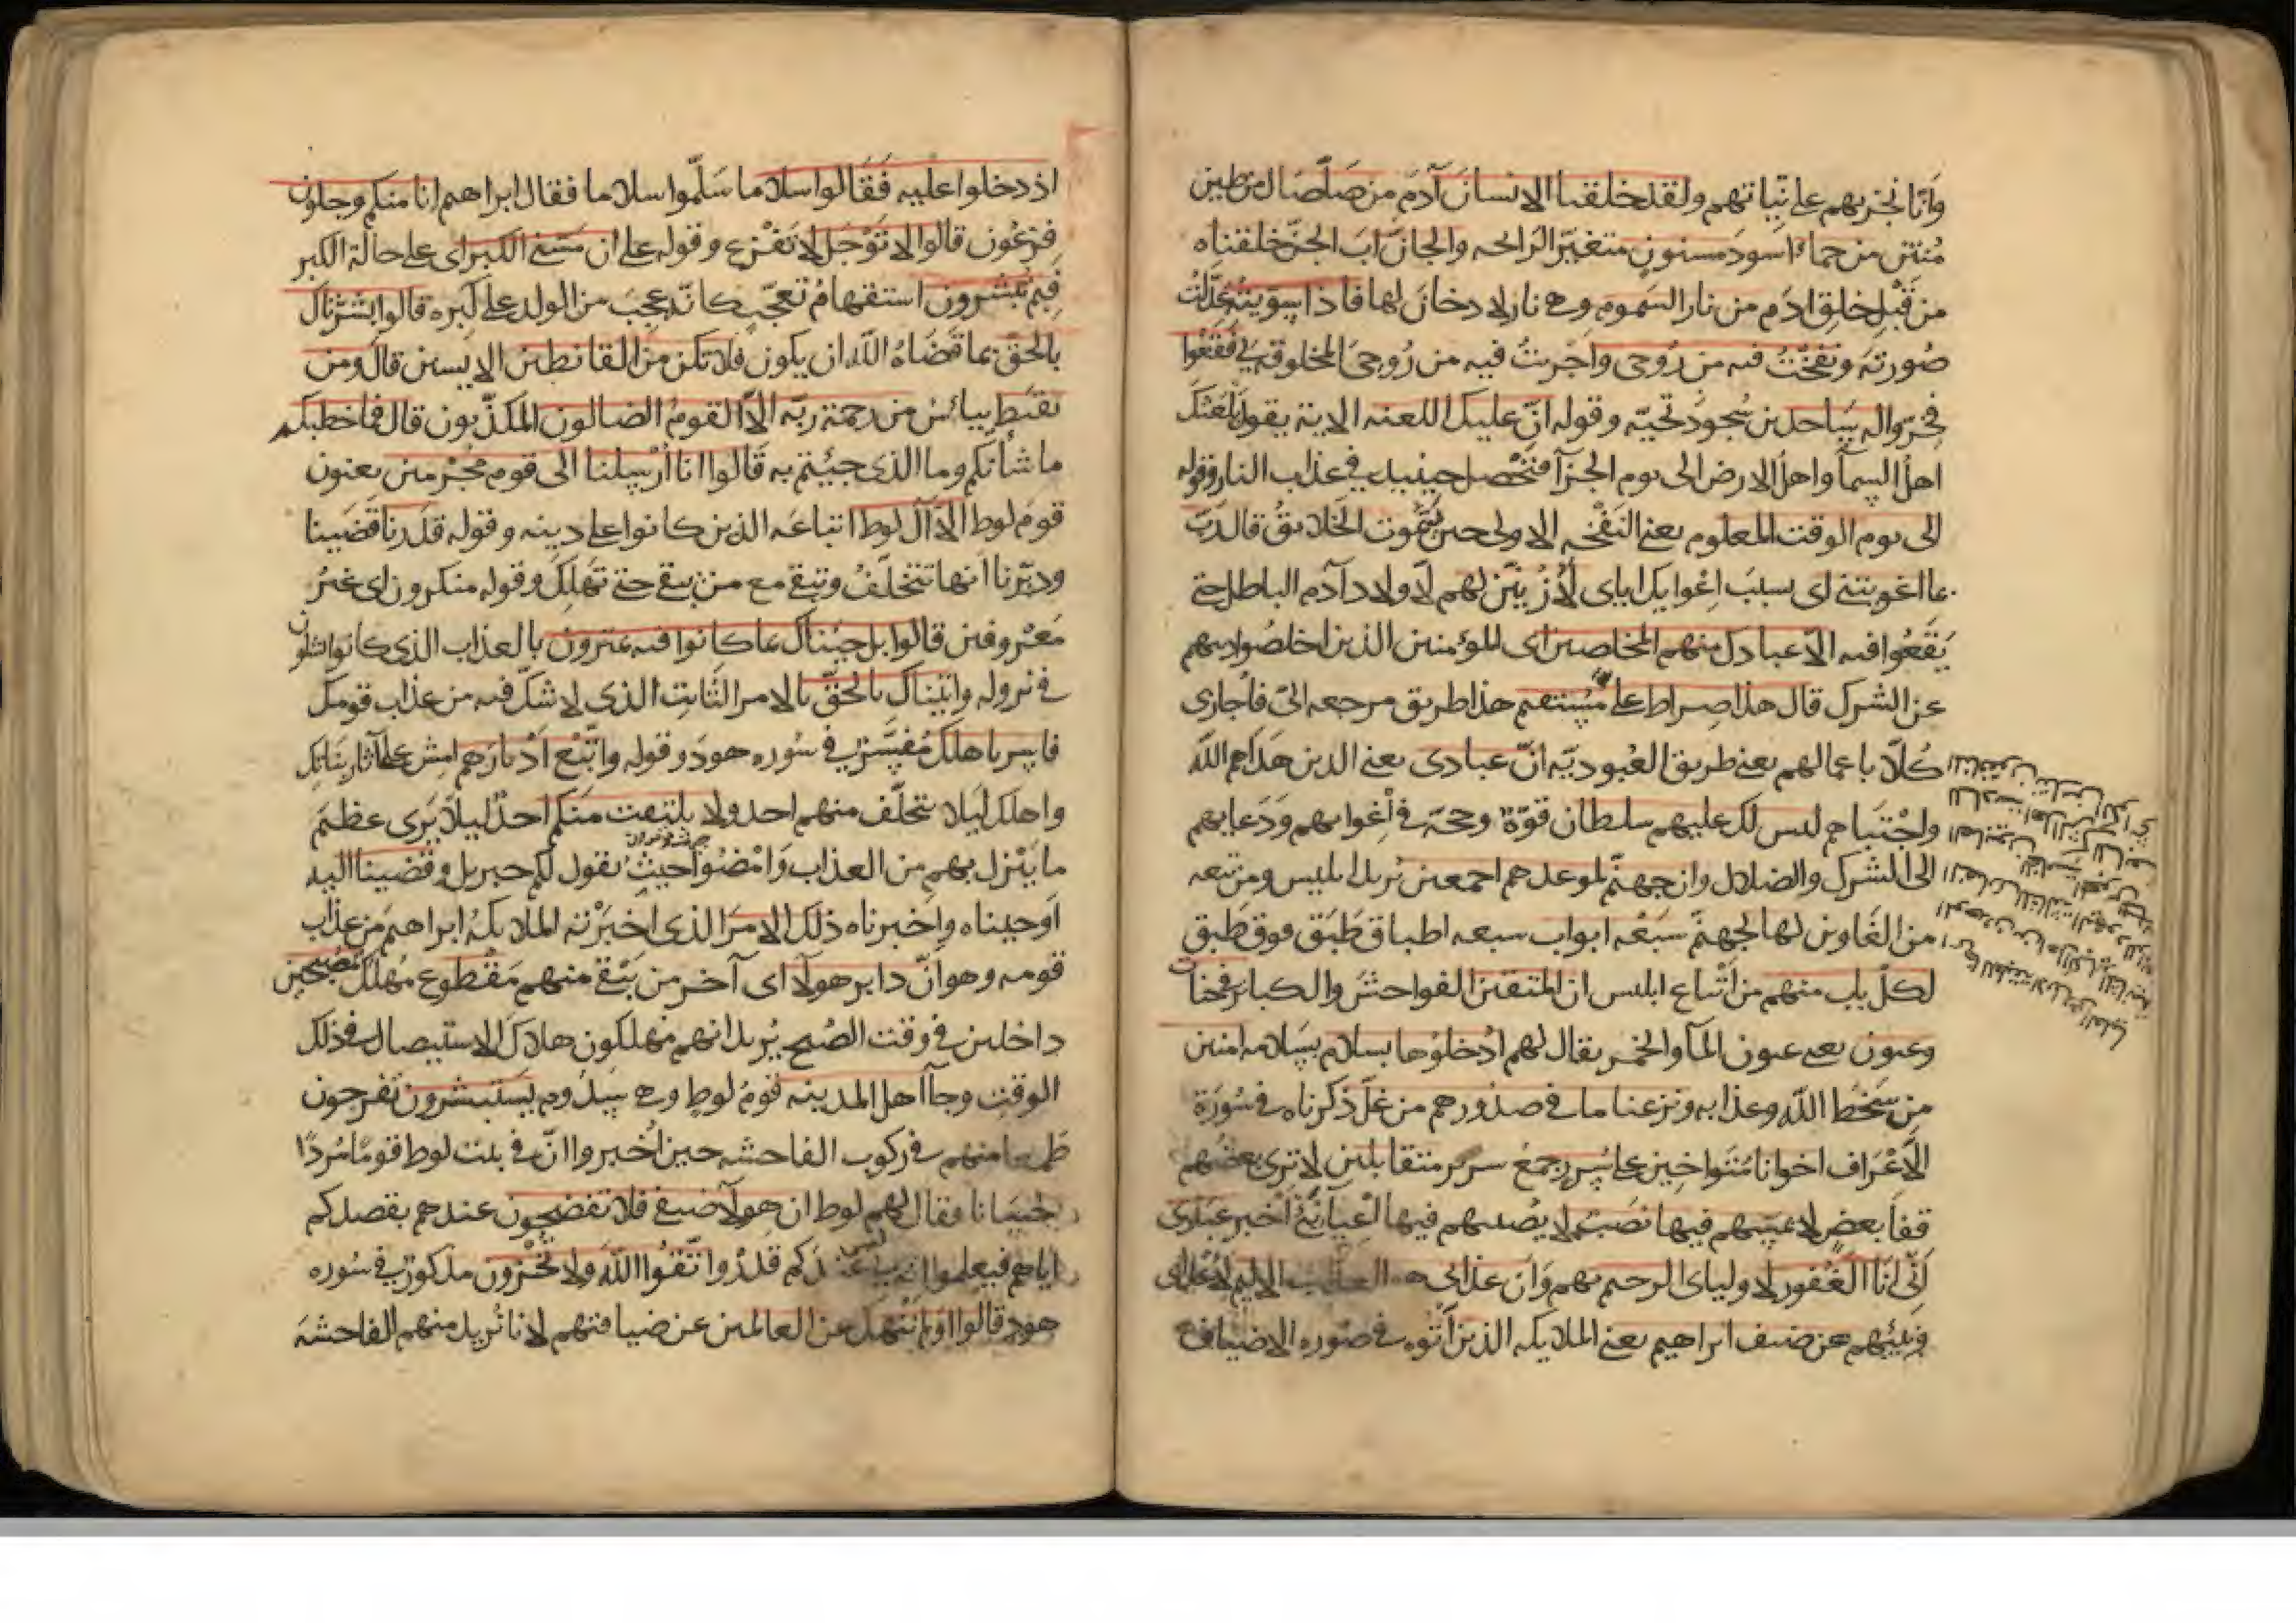 وانا نجزيهم على نياتهم ولقد خلقنا الانسان آدم من صلصال من طين
منتن من حمأ اسود مسنون متغير الرائحه والجان اب الجن خلقناه
من قبل خلق ادم من نار السموم وهي نار لا دخان لها فاذا سويته عدلت
صورته ونفخت فيه من روحي واجريت فيه من روحي المخلوقة في فقعوا
فخروا له ساجدين سجود تحيه وقوله ان عليك اللعنه الاية يقول يلعنك
اهل السمآ واهل الارض الى يوم الجزآ فتحصل حينئيذ في عذاب النار وقوله
الى يوم الوقت المعلوم يعني النفخه الاولى حين يموت الخلايق قال رب
بما اغويتني اى بسبب اغوايك اياى لأزينن لهم لاولاد آدم الباطل حتى
يقعوا فيه الا عبادك منهم المخلصين اى المؤمنين الذين اخلصوا دينهم
عن الشرك قال هذا صراط على مستقيم هذا طريق مرجعه الى فاجازى
كلا باعمالهم يعني طريق العبوديه ان عبادى يعني الذين هداهم الله
واجتباهم ليس لك عليهم سلطان قوة وحجة في اغوايهم ودعايهم
الى الشرك والضلال وان جهنم لموعدهم اجمعين يريد ابليس ومن تبعه
من الغاوين لها لجهنم سبعه ابواب سبعه اطباق طبق فوق طبق
لكل باب منهم من اتباع ابليس ان المتقين الفواحش والكباير في جنات
وعيون يعني عيون المآ والخمر يقال لهم ادخلوها بسلام بسلامه امنين
من سخط الله وعذابه ونزعنا ما في صدورهم من غل ذكرناه في سورة
الاعراف اخوانا متواخين على سرر جمع سرير متقابلين لا ترى بعضهم
قفا بعض لا يمسهم فيها نصب لا يصيبهم فيها اعيآ نبئ اخبر عبادى
انى انا الغفور لاوليآى الرحيم بهم وان عذابى هو العذاب الاليم لاعدآى
ونبئهم عن ضيف ابراهيم يعني الملايكه الذين اتوه في صوره الاضياف
اذ دخلوا عليه فقالوا سلاما سلموا سلاما فقال ابراهيم انا منكم وجلون
فزعون قالوا لا توجل لا تفزع وقوله على ان مسني الكبر اى على حالة الكبر
فبم تبشرون استفهام تعجب كانه عجب من الولد على كبره قالوا بشرناك
بالحق بما قضاه الله ان يكون فلا تكن من القانطين الايسين قال ومن
يقنط ييأس من رحمة ربه الا القوم الضالون المكذبون قال فما خطبكم
ما شأنكم وما الذى جيئتم به قالوا انا ارسلنا الى قوم مجرمين يعنون
قوم لوط الا آل لوط اتباعه الذين كانوا على دينه وقوله قدرنا قضينا
ودبرنا انها تتخلف وتبقى مع من بقي حتى تهلك وقوله منكرون اى غير
معروفين قالوا بل جيناك بما كانوا فيه يمترون بالعذاب الذى كانوا يشكون
في نزوله واتيناك بالحق بالامر الثابت الذى لا شك فيه من عذاب قومك
فاسر باهلك مفسر في سوره هود وقوله واتبع ادبارهم امش على آثار بناتك
واهلك ليلا يتخلف منهم احد ولا يلتفت منكم احد ليلا يرى عظيم
ما ينزل بهم من العذاب وامضوا حيث يقول لكم جبريل وقضينا اليه
اوحيناه واخبرناه ذلك الامر الذى اخبرته الملايكة ابراهيم من عذاب
قومه وهو ان دابر هولآ اى آخر من يبقى منهم مقطوع مهلك مصبحين
داخلين في وقت الصبح يريد انهم مهلكون هلاك الاستيصال في ذلك
الوقت وجآ اهل المدينه قوم لوط وهي سدوم يستبشرون يفرحون
طمعا منهم في ركوب الفاحشه حين اخبروا ان في بيت لوط قوما مردا
حسانا فقال لهم لوط ان هولآ ضيفي فلا تفضحون عندهم بقصدكم
اياهم فيعلموا انه ليس لى عندكم قدر واتقوا الله ولا تخزون مذكور في سوره
هود قالوا اولم ننهك عن العالمين عن ضيافتهم لانا نريد منهم الفاحشه